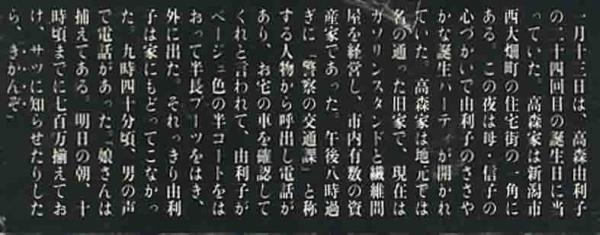 一月十三日は、高森由利子
の二十四回目の誕生日に当
っていた。高森家は新潟市
西大畑町の住宅街の一角に
ある。この夜は母・信子の
心づかいで由利子のささや
かな誕生パーティが開かれ
ていた。高森家は地元では
名の通った旧家で、現在は
ガソリンスタンドと繊維問
屋を経営し、市内有数の資
産家であった。午後八時過
ぎに「警察の交通課」と称
する人物から呼出し電話が
あり、お宅の車を確認して
くれと言われて、由利子が
ベージュ色の半コートをは
おって半長ブーツをはき、
外に出た。それっきり由利
子は家にもどってこなかっ
た。九時四十分頃、男の声
で電話があった。「娘さんは
捕えてある。明日の朝、十
時頃までに七百万揃えてお
け、サツに知らせたりした
ら、きかんぞ」